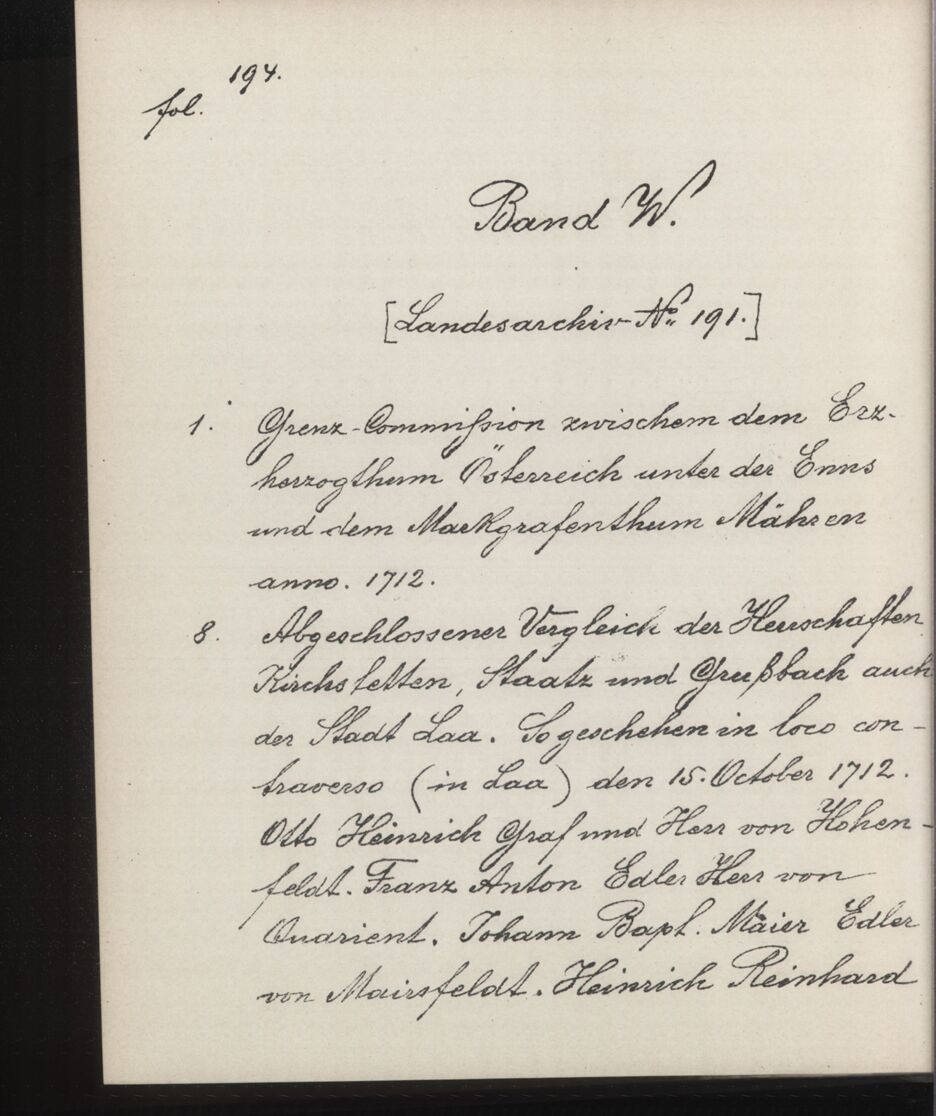 194.
fol.
Band W.
[Landesarchiv-No. 191.]
1. Grenz-Commißion zwischem dem Erz-
herzogthum Österreich unter der Enns
und dem Markgrafenthum Mähren
anno. 1712.
8. Abgeschlossener Vergleich der Herrschaften
Kirchstetten, Staatz und Grußbach auch
der Stadt Laa. So geschehen in loco con-
traverso (in Laa) den 15. October 1712.
Otto Heinrich Graf und Herr von Hohen-
feldt. Franz Anton Edler Herr von
Quarient. Johann Bapt. Maier Edler
von Mairsfeldt. Heinrich Reinhard